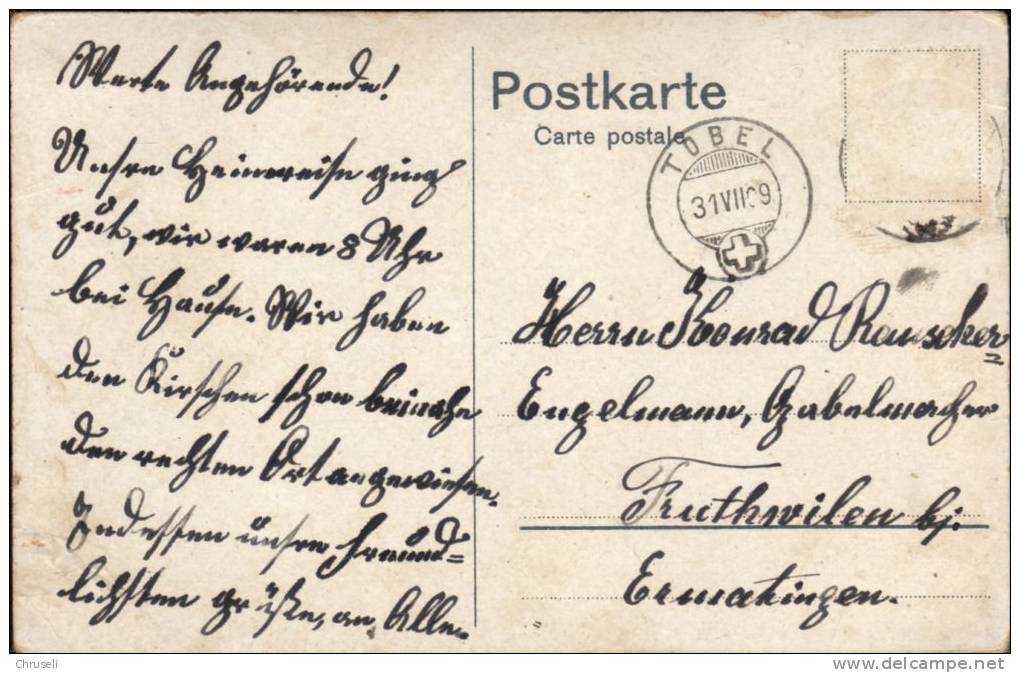 Werte Angehörende!
Unsre Heimreise ging
gut, wir waren 8 Uhr
bei Hause. Wir haben
den Kirschen schon beinahe
den rechten Ort angewiesen.
Indessen unsre freund=
lichsten grüße, an Alle.
Postkarte
Carte postale
TOBEL
31 VII 09
Herrn Konrad Rauscher
Engelmann, Gabelmacher
Fruthwilen bj.
Ermatingen.
Chruseli
http://www.delcampe.net